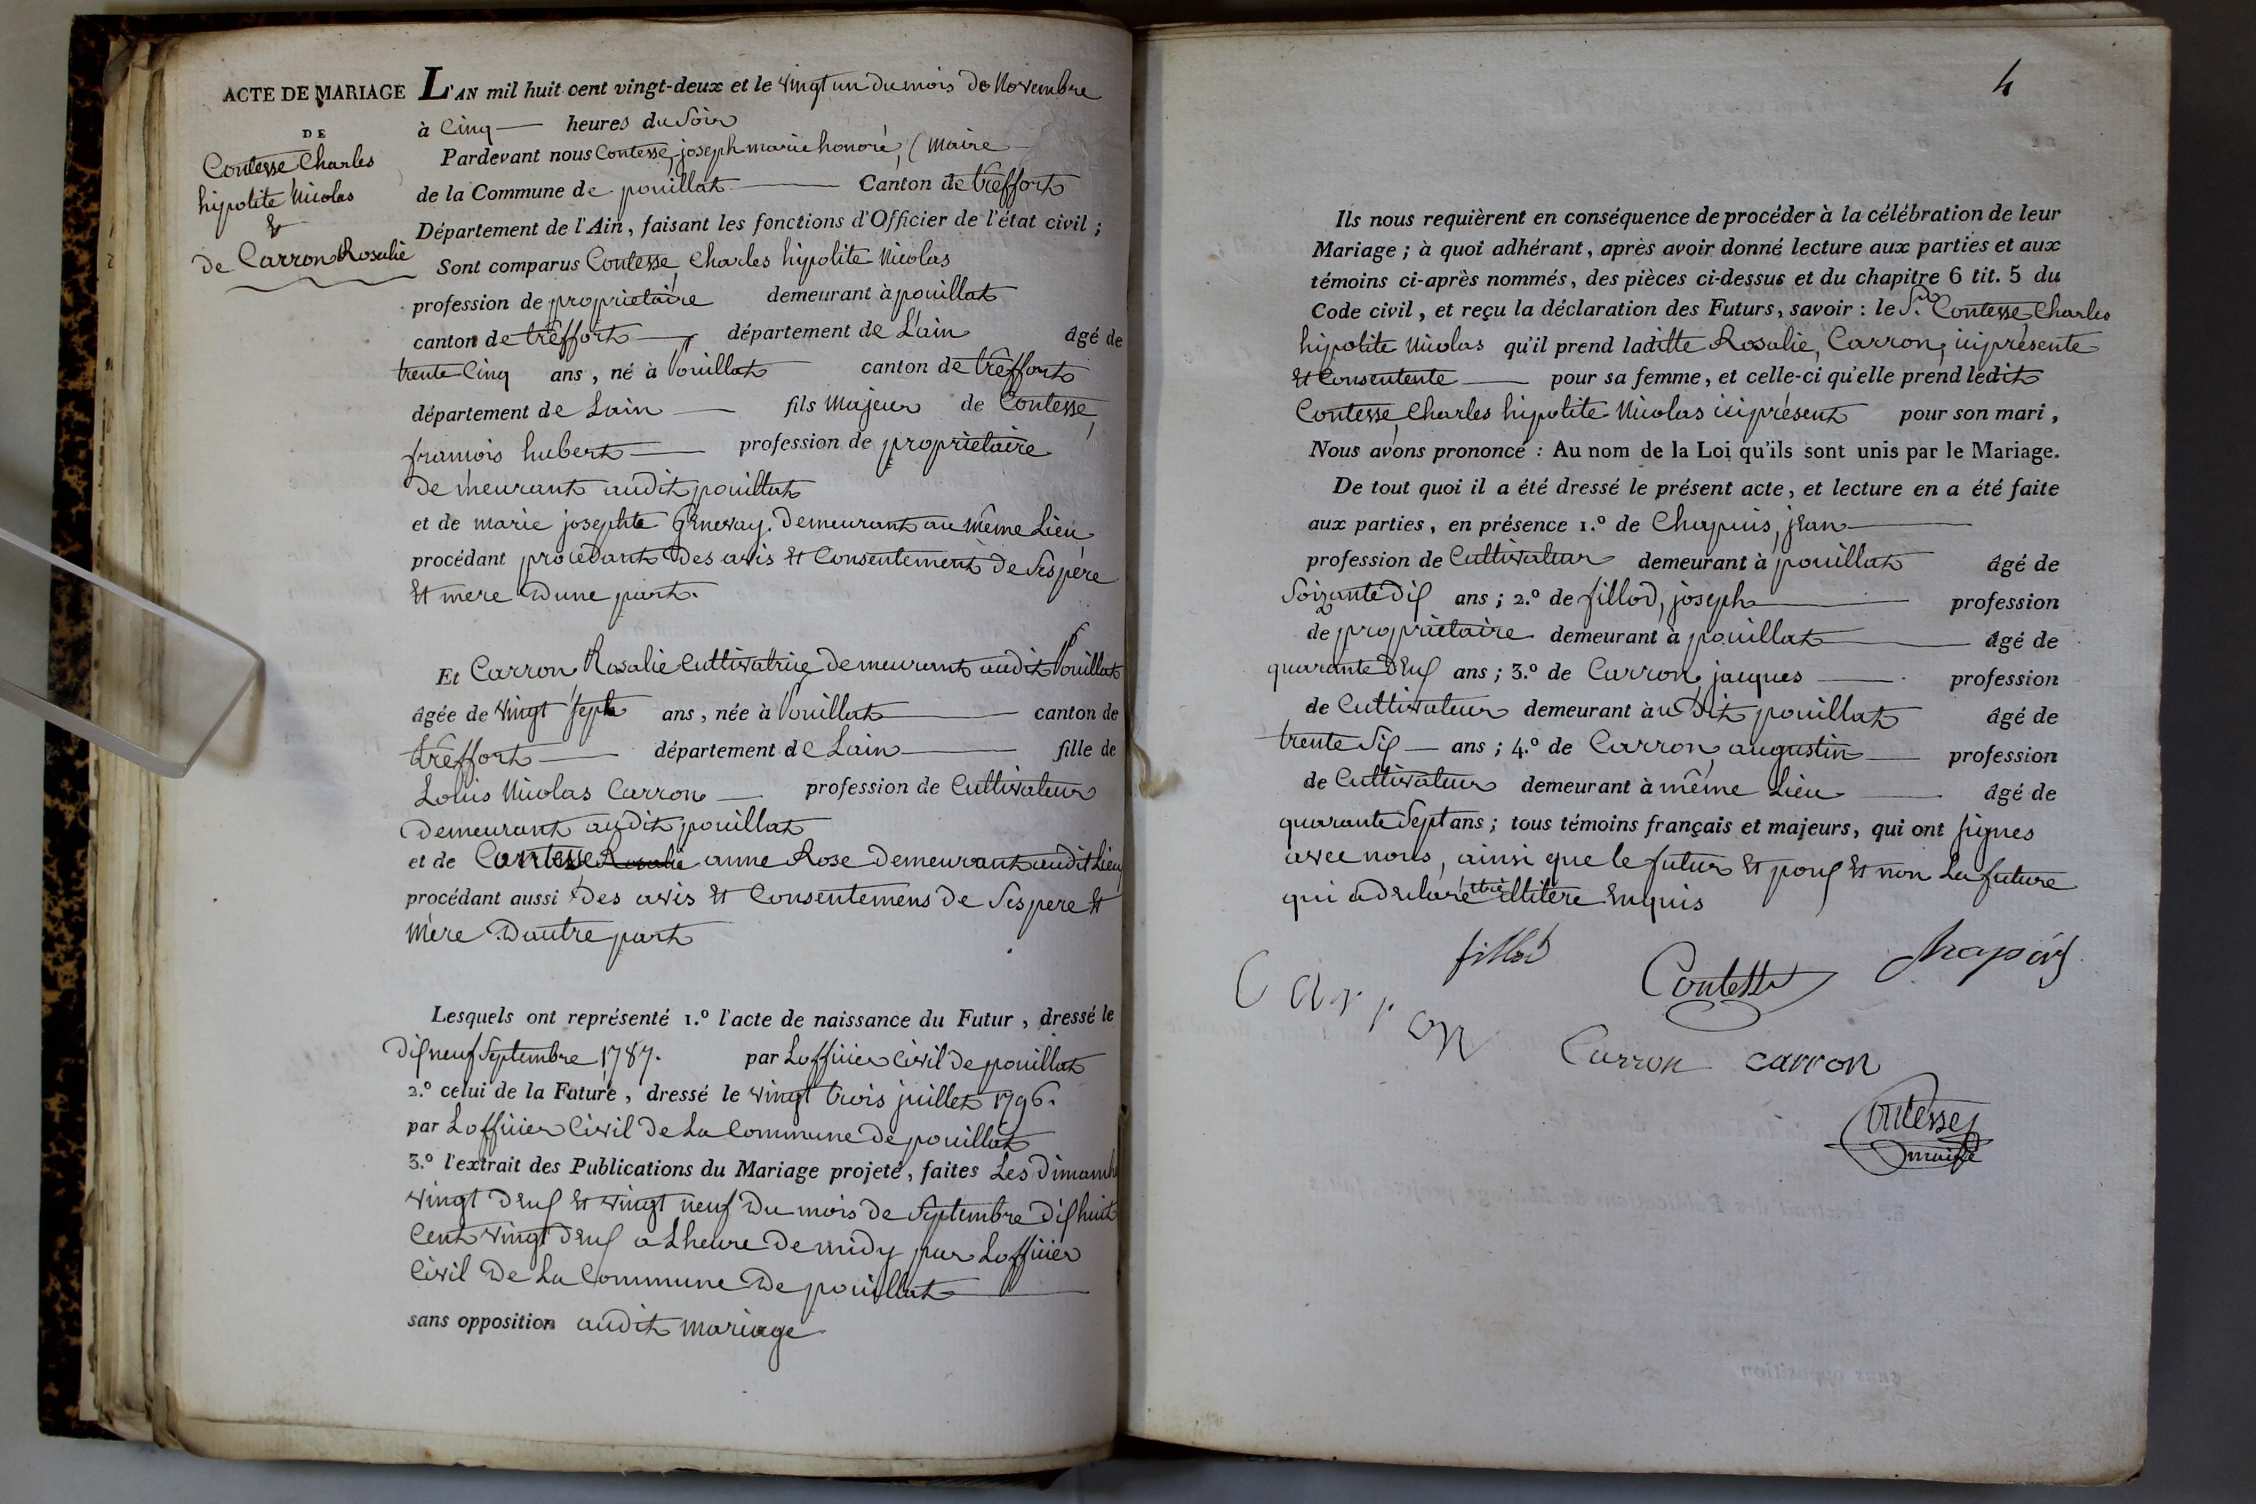 ACTE DE MARIAGE
DE
Contesse Charles
hipolite Nicolas
&
de Carron Rosalie
L'AN mil huit cent vingt-deux et le vingt un du mois de Novembre
à Cinq heures du Soir
Pardevant nous Contesse, joseph marie honoré, Maire
de la Commune de pouillat Canton de treffort
Département de l'Ain, faisant les fonctions d'Officier de l'état civil ;
Sont comparus Contesse, Charles hipolite Nicolas
profession de proprietaire demeurant à pouillat
canton de treffort département de L'ain âgé de
trente Cinq ans, né à Pouillat canton de treffort
département de Lain fils Majeur de Contesse,
francois hubert profession de proprietaire
demeurant audit pouillat
et de marie josephte Genevay. demeurant au même Lieu
procédant procedant des avis et Consentement de Ses père
et mere Dune part.
Et Carron, Rosalie Cultivatrice demeurant audit Pouillat
âgée de vingt Sept ans, née à Pouillat canton de
treffort département de Lain fille de
Louis Nicolas Carron profession de Cultivateur
demeurant audit pouillat
et de Contesse Rosalie anne Rose demeurant audit Lieu
procédant aussi des avis et Consentemens de Ses pere et
Mère Dautre part
Lesquels ont représenté 1.º l'acte de naissance du Futur, dressé le
dix neuf Septembre 1787. par Loffiier Civil de pouillat
2.º celui de la Future, dressé le vingt trois juillet 1796.
par Loffiier Civil de La Commune de pouillat
3.º l'extrait des Publications du Mariage projeté, faites Les Dimanche
vingt deux et vingt neuf du mois de Septembre dix huit
Cent vingt deux a Lheure de midy par Loffiier
Civil de La Commune de pouillat
sans opposition audit Mariage
4
Ils nous requièrent en conséquence de procéder à la célébration de leur
Mariage ; à quoi adhérant, après avoir donné lecture aux parties et aux
témoins ci-après nommés, des pièces ci-dessus et du chapitre 6 tit. 5 du
Code civil, et reçu la déclaration des Futurs, savoir : le Sr Contesse Charles
hipolite Nicolas qu'il prend laditte Rosalie, Carron, ici présente
et Consentente pour sa femme, et celle-ci qu'elle prend ledit
Contesse, Charles hipolite Nicolas ici présent pour son mari,
Nous avons prononcé : Au nom de la Loi qu'ils sont unis par le Mariage.
De tout quoi il a été dressé le présent acte, et lecture en a été faite
aux parties, en présence 1.º de Chapuis, jean
profession de Cultivateur demeurant à pouillat âgé de
Soixante dix ans ; 2.º de fillod, joseph profession
de proprietaire demeurant à pouillat âgé de
quarante deux ans ; 3.º de Carron, jacques profession
de Cultivateur demeurant à udit pouillat âgé de
trente Six ans ; 4.º de Carron, augustin profession
de Cultivateur demeurant à même Lieu âgé de
quarante Sept ans ; tous témoins français et majeurs, qui ont signes
avec nous, ainsi que le futur et non La future
qui a declaré être illitère Enquis
fillod
Contesse
Carron
Carron carron
Contesse
maire